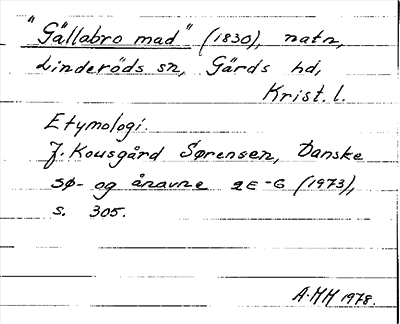 "Gällabro mad" (1830), natn,
Linderöds sn, Gärds hd,
Krist. l.
Etymologi.
J. Kousgård Sørensen, Danske
sø- og ånavne 2 E-G (1973),
s. 305.
A-MH 1978.